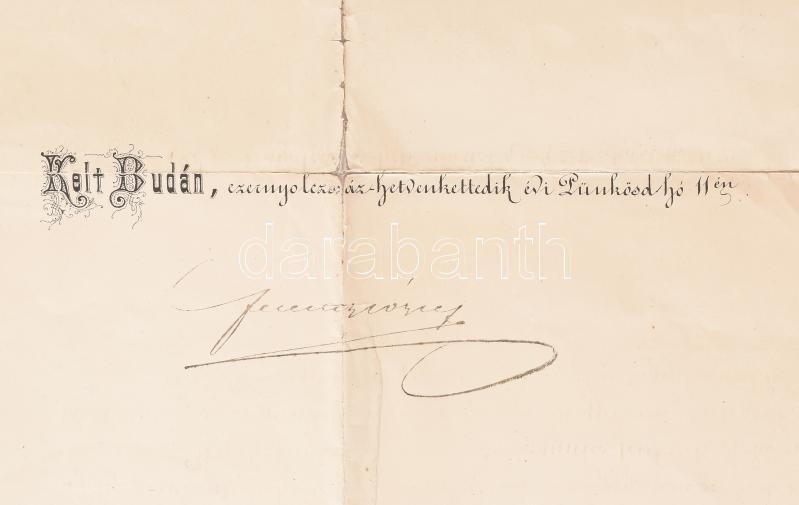 Kelt Budán, ezernyolczszáz-hetvenkettedik évi Pünkösd hó 11én.
darabanth
Ferencz József